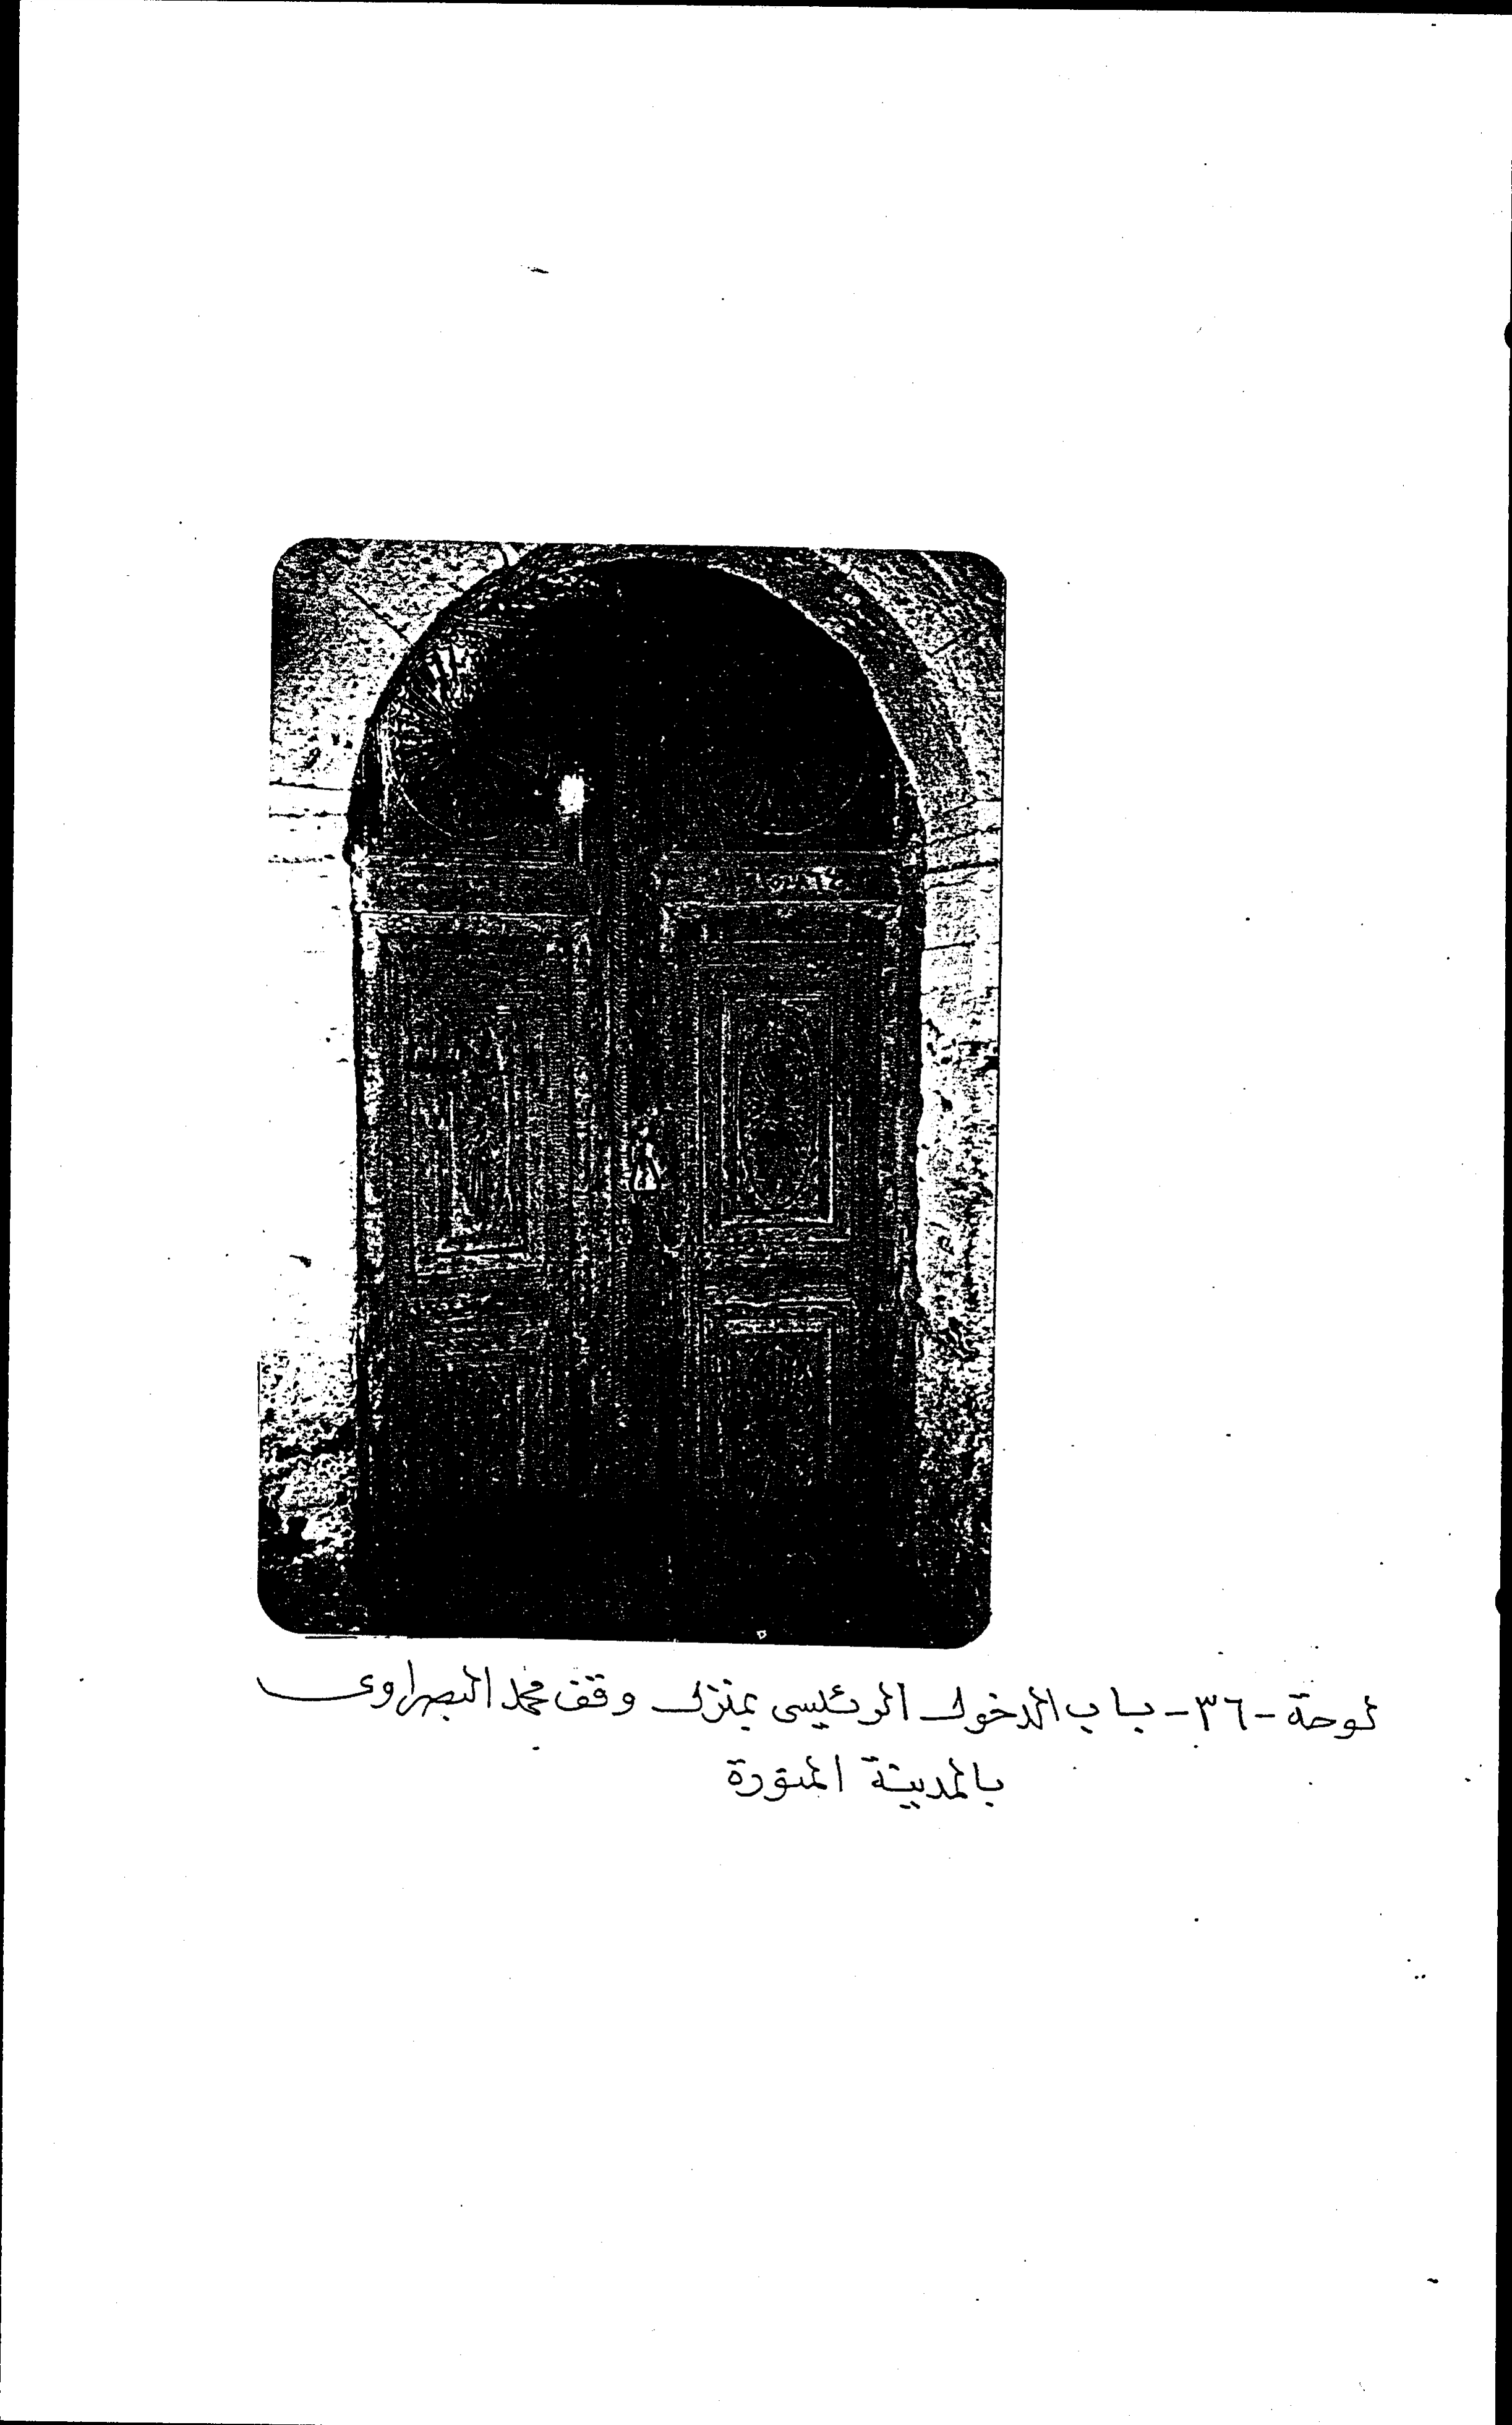 لوحة -٣٦- باب الدخول الرئيسى بمنزل وقف محمد البصراوى
بالمدينة المنورة